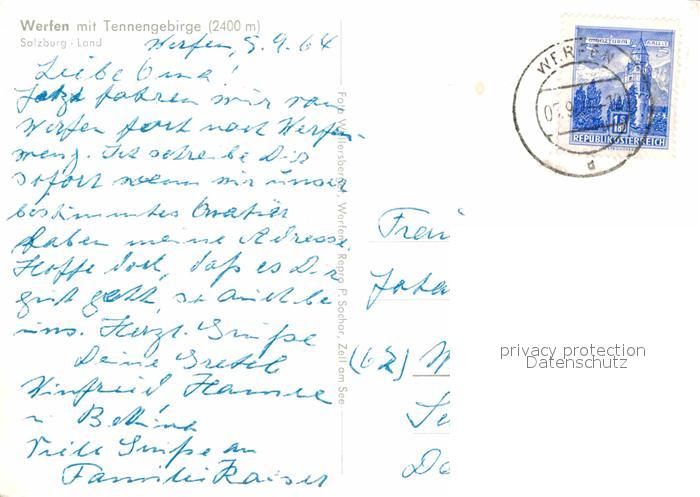 Werfen mit Tennengebirge (2400 m)
Salzburg - Land
Werfen, 5.9.64
Liebe Oma!
Jetzt fahren wir von
Werfen fort nach Werfen-
weng. Ich schreibe Dir
sofort wenn wir unser
bestimmtes Quatier
haben meine Adresse.
Hoffe doch, daß es Dir
gut geht, so auch bei
uns. Herzl. Grüße
Deine Gretel
Winfried
u Bettina
Viele Grüße an
Familie Kaiser
Foto Wellersberger, Werfen, Repro P. Sochor, Zell am See
WERFEN
MÜNZTURM HALL i. T.
1.50
REPUBLIK ÖSTERREICH
Frau
Joha
(62) W
privacy protection
Datenschutz